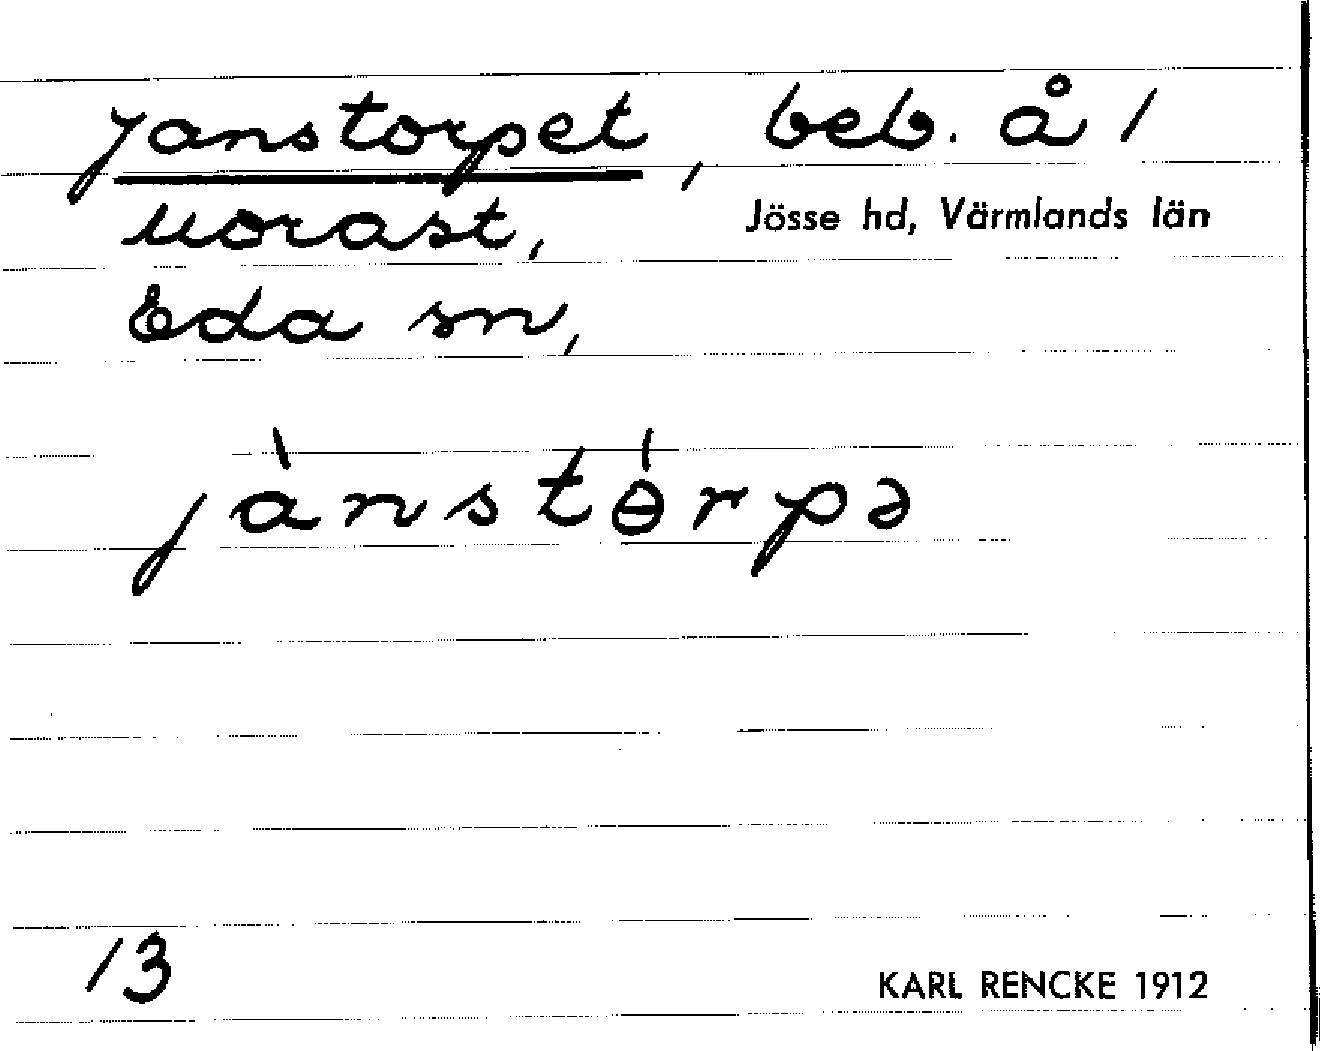 Janstorpet, beb. å 1
Morast,
Jösse hd, Värmlands län
Eda sn,
jànstɵ́rpə
13
KARL RENCKE 1912